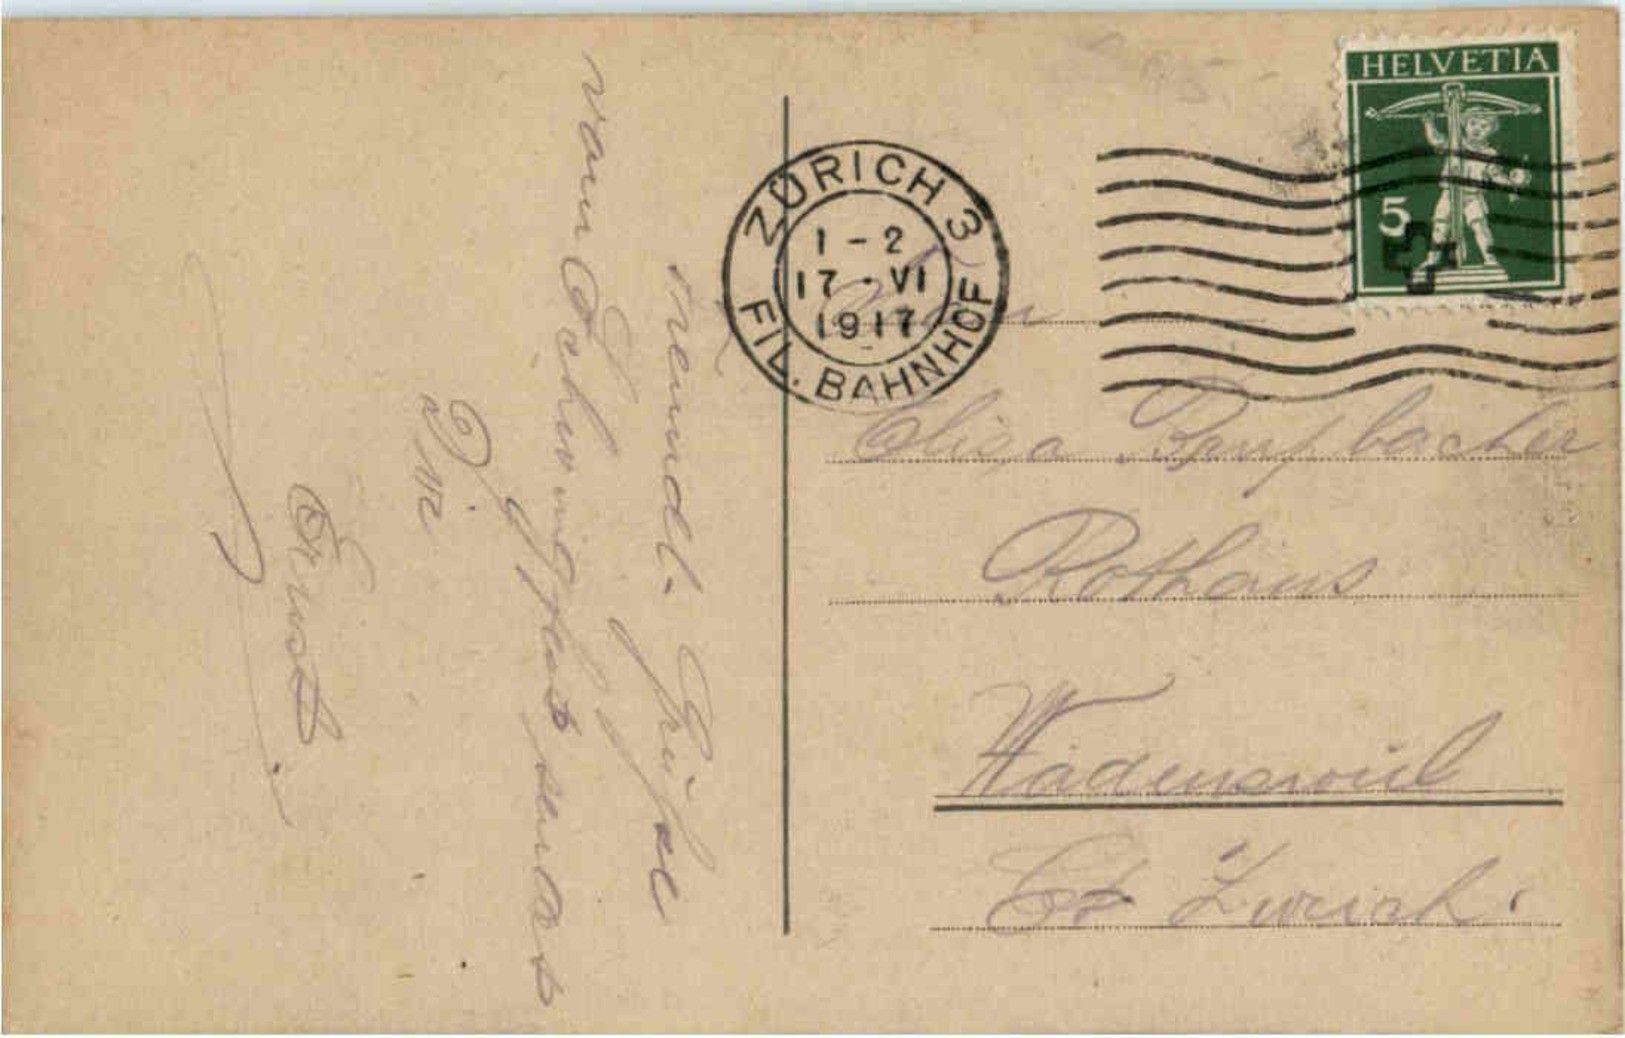 HELVETIA
5
ZÜRICH 3
1-2
17·VI
1917
FIL. BAHNHOF
Elisa Rompbacher
Rothaus
Wädenswil
Ct Zürich.
freundl. Grüsse
vom Schwingfest sendet
Dir
Ernst